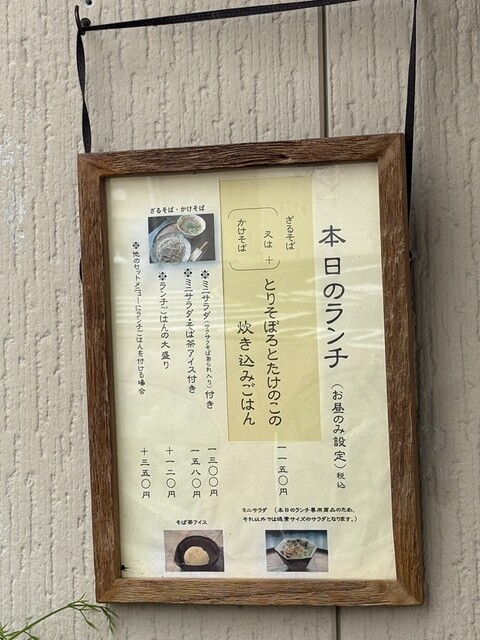 本日のランチ（お昼のみ設定）税込
ざるそば
又は ＋
かけそば
とりそぼろとたけのこの
炊き込みごはん
一一五〇円
ざるそば・かけそば
※ミニサラダ（ワクワクそばあられ入り）付き 一三〇〇円
※ミニサラダ・そば茶アイス付き 一五八〇円
※ランチごはんの大盛り ＋一二〇円
※他のセットメニューにランチごはんを付ける場合 ＋三五〇円
ミニサラダ （本日のランチ専用商品のため、
それ以外では通常サイズのサラダとなります。）
そば茶アイス